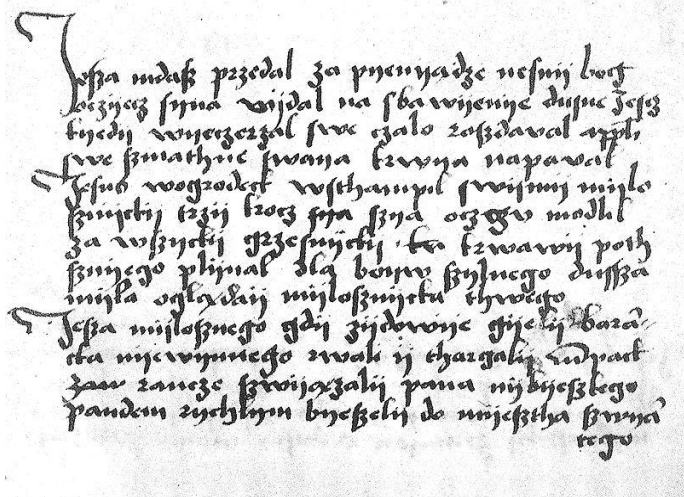 Jesza iudasz przedal za pyenyadze nesmij bog
oczyecz syna wydal na sbawyenye dusne Jesz
kyedij wyeczerzal swe czalo rosdaval apli
swe szmathne swaya krwya napaval
Jesus wogrodecz wsthampil swymij mylo
sznycky trzy krocz sya szna oczgv modlil
za wszycky grzesnycky krwawij poth
sznyego plynal dla boyw szylnego dussza
myla oglądaij myloszniycka thwego
Jesza mylosznego gdij zydowye gyely bara
cka nyewynnego rwali ij thargalij
rancze szwyązalij pana nybyeszkego
pandem rychlym byeszelij do myesztha szwya
tego